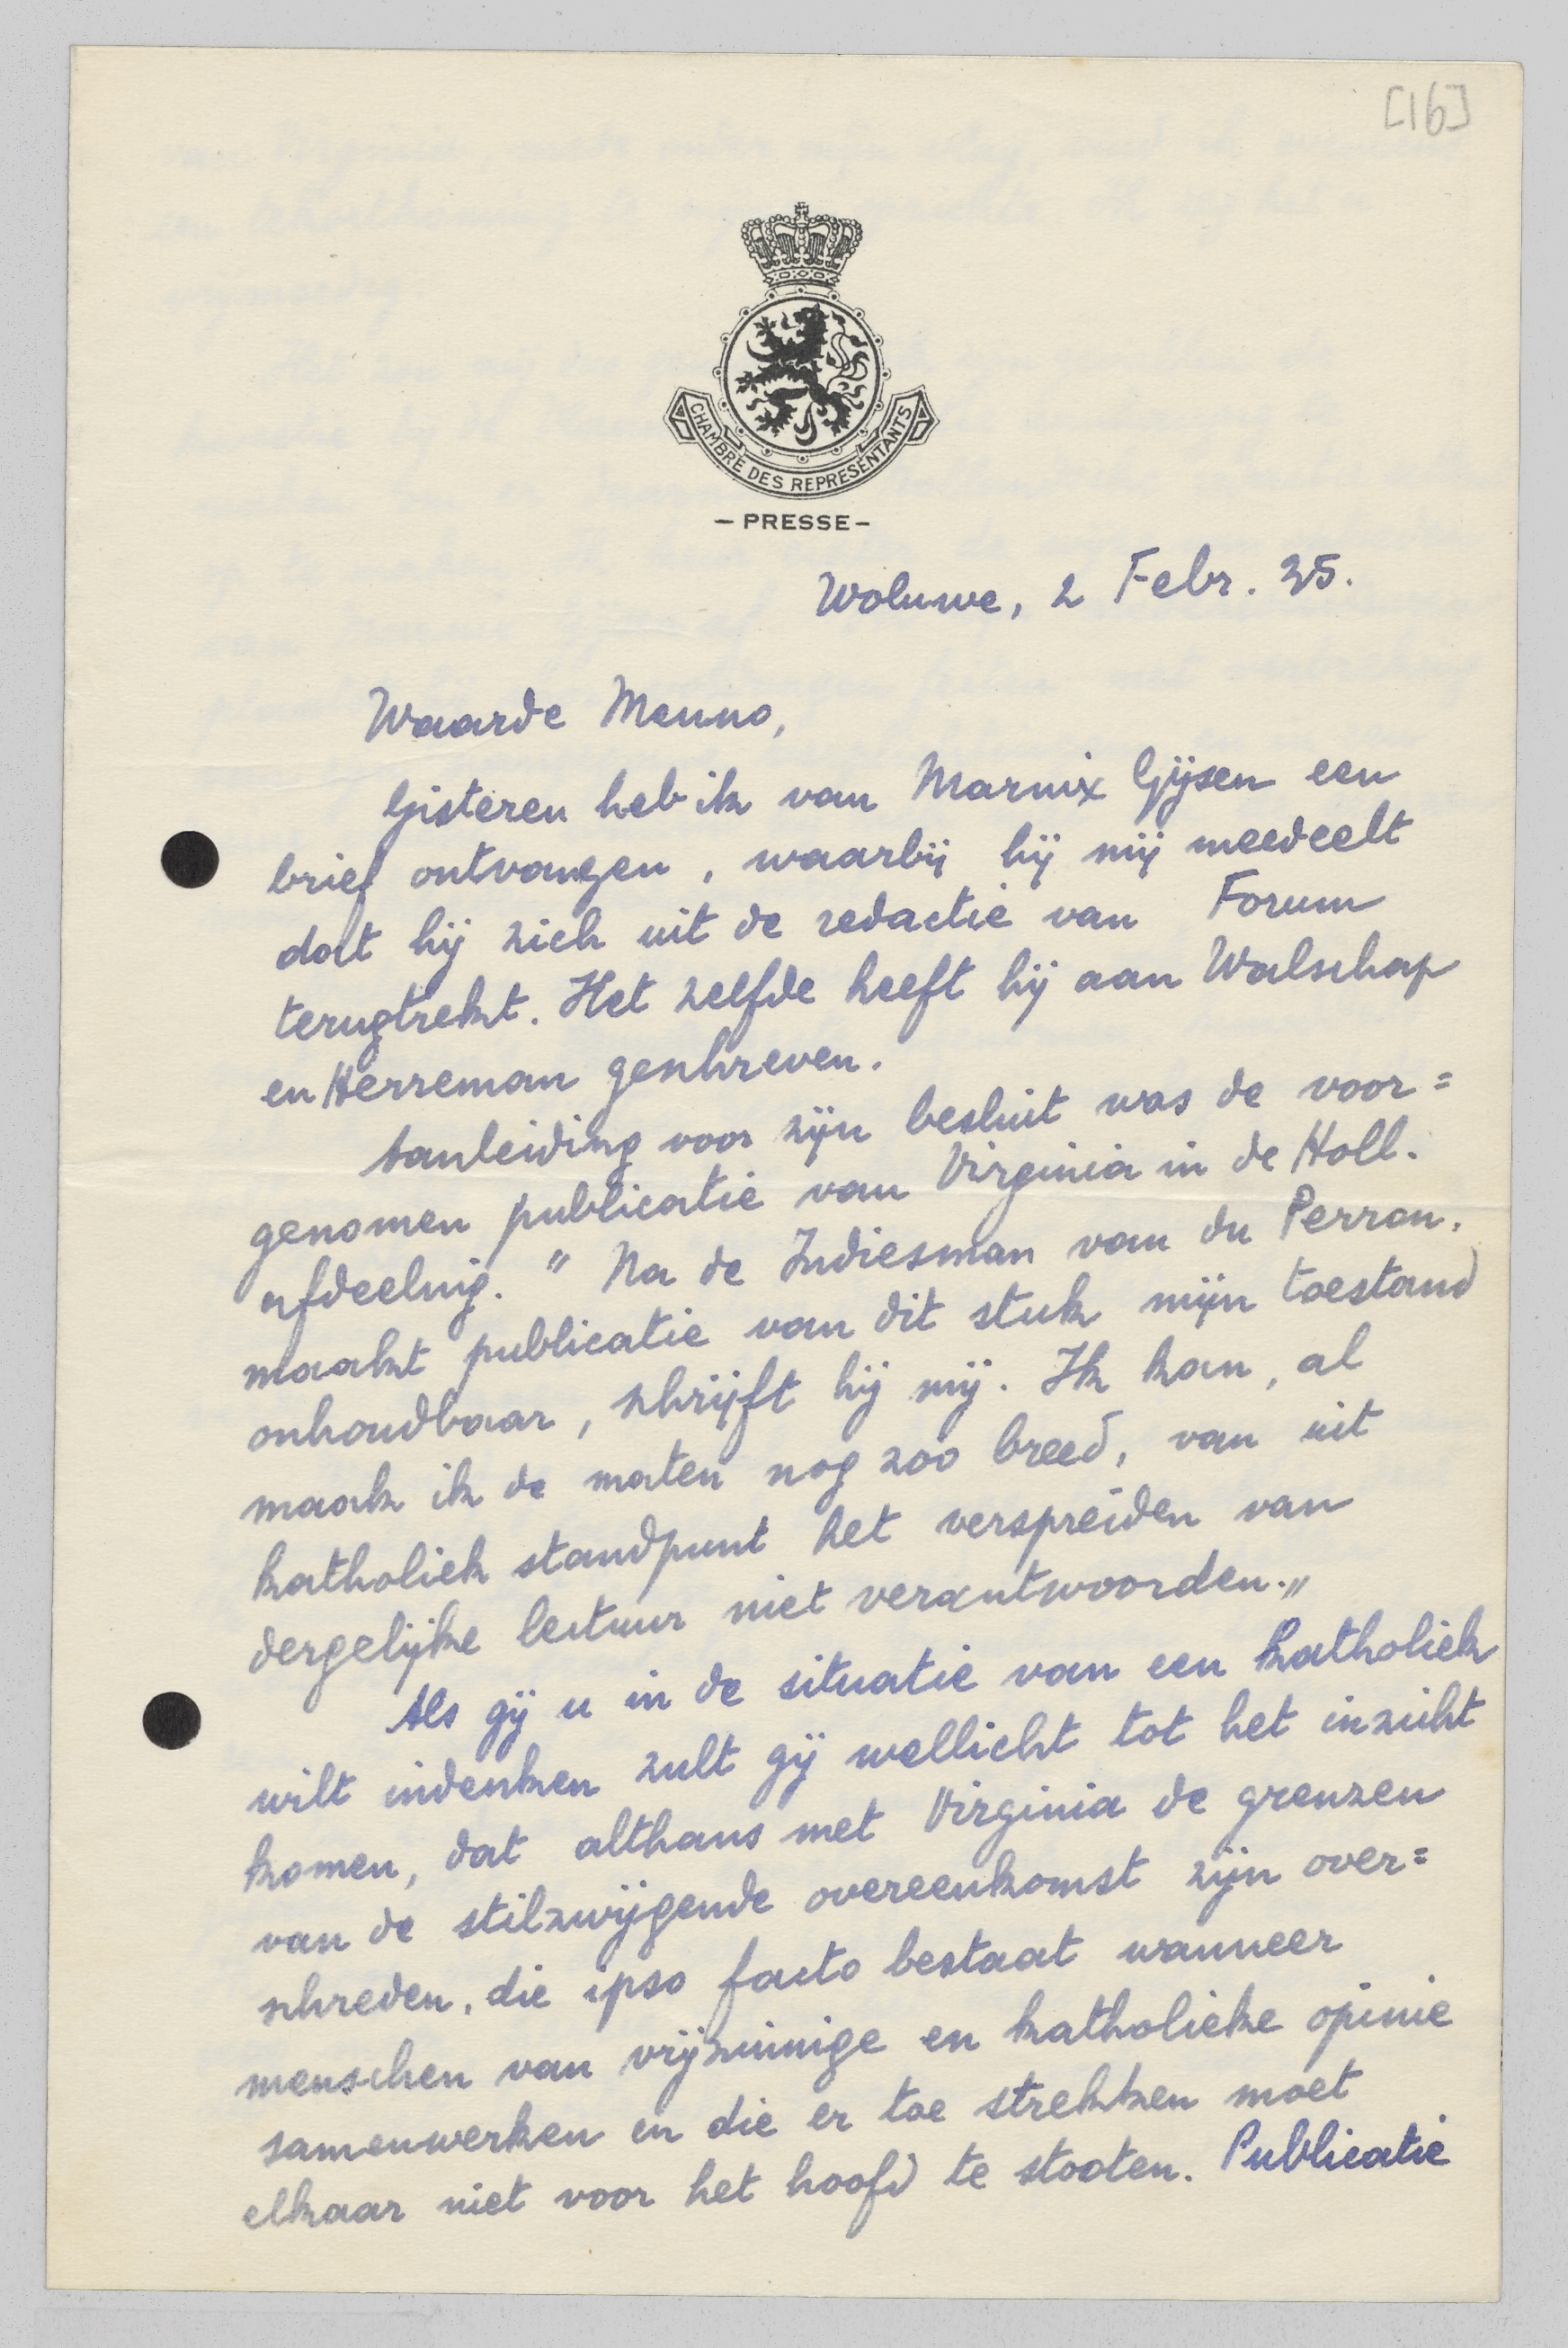 [16]
CHAMBRE DES REPRESENTANTS
- PRESSE -
Woluwe, 2 Febr. 35.
Waarde Menno,
Gisteren heb ik van Marnix Gijsen een
brief ontvangen, waarbij hij mij meedeelt
dat hij zich uit de redactie van Forum
terugtrekt. Het zelfde heeft hij aan Walschap
en Herreman geschreven.
Aanleiding voor zijn besluit was de voor=
genomen publicatie van Virginia in de Holl.
afdeeling. " Na de Indiesman van du Perron.
maakt publicatie van dit stuk mijn toestand
onhoudbaar, schrijft hij mij. Ik kan, al
maak ik de maten nog zoo breed, van uit
katholiek standpunt het verspreiden van
dergelijke lectuur niet verantwoorden.„
Als gij u in de situatie van een katholiek
wilt indenken zult gij wellicht tot het inzicht
komen, dat althans met Virginia de grenzen
van de stilzwijgende overeenkomst zijn over=
schreden, die ipso facto bestaat wanneer
menschen van vrijzinnige en katholieke opinie
samenwerken en die er toe strekken moet
elkaar niet voor het hoofd te stooten. Publicatie